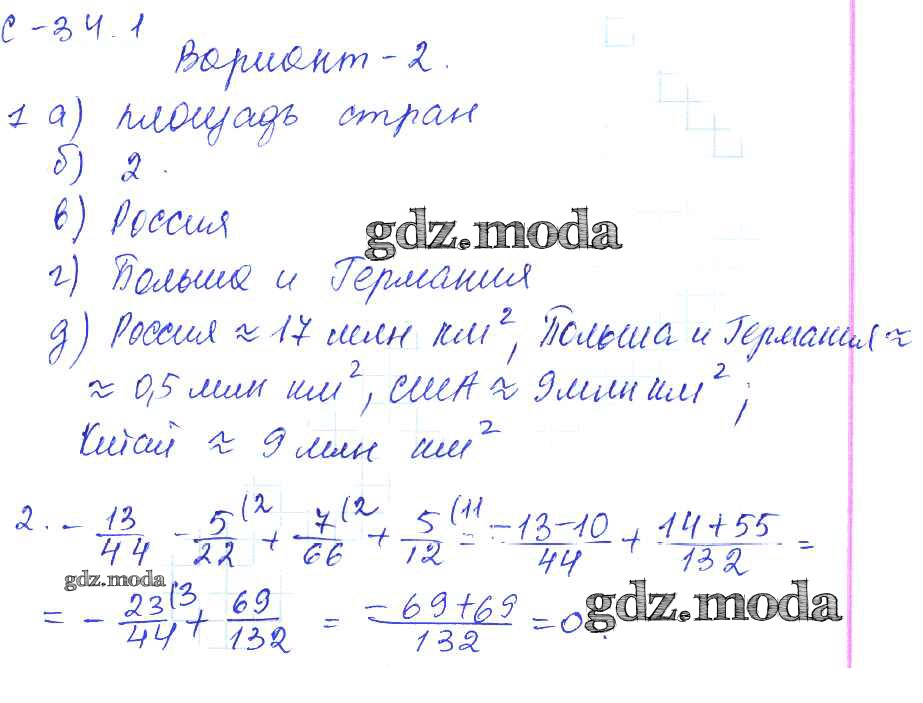 С-34.1
Вариант-2.
1 а) площадь стран
б) 2.
в) Россия
gdz.moda
г) Польша и Германия
д) Россия ≈ 17 млн км², Польша и Германия ≈
≈ 0,5 млн км², США ≈ 9 млн км²;
Китай ≈ 9 млн км²
2. - 13/44 - 5/22 (2 + 7/66 (2 + 5/12 (11 = -13-10/44 + 14+55/132 =
gdz.moda
= - 23/44 (3 + 69/132 = -69+69/132 = 0.
gdz.moda